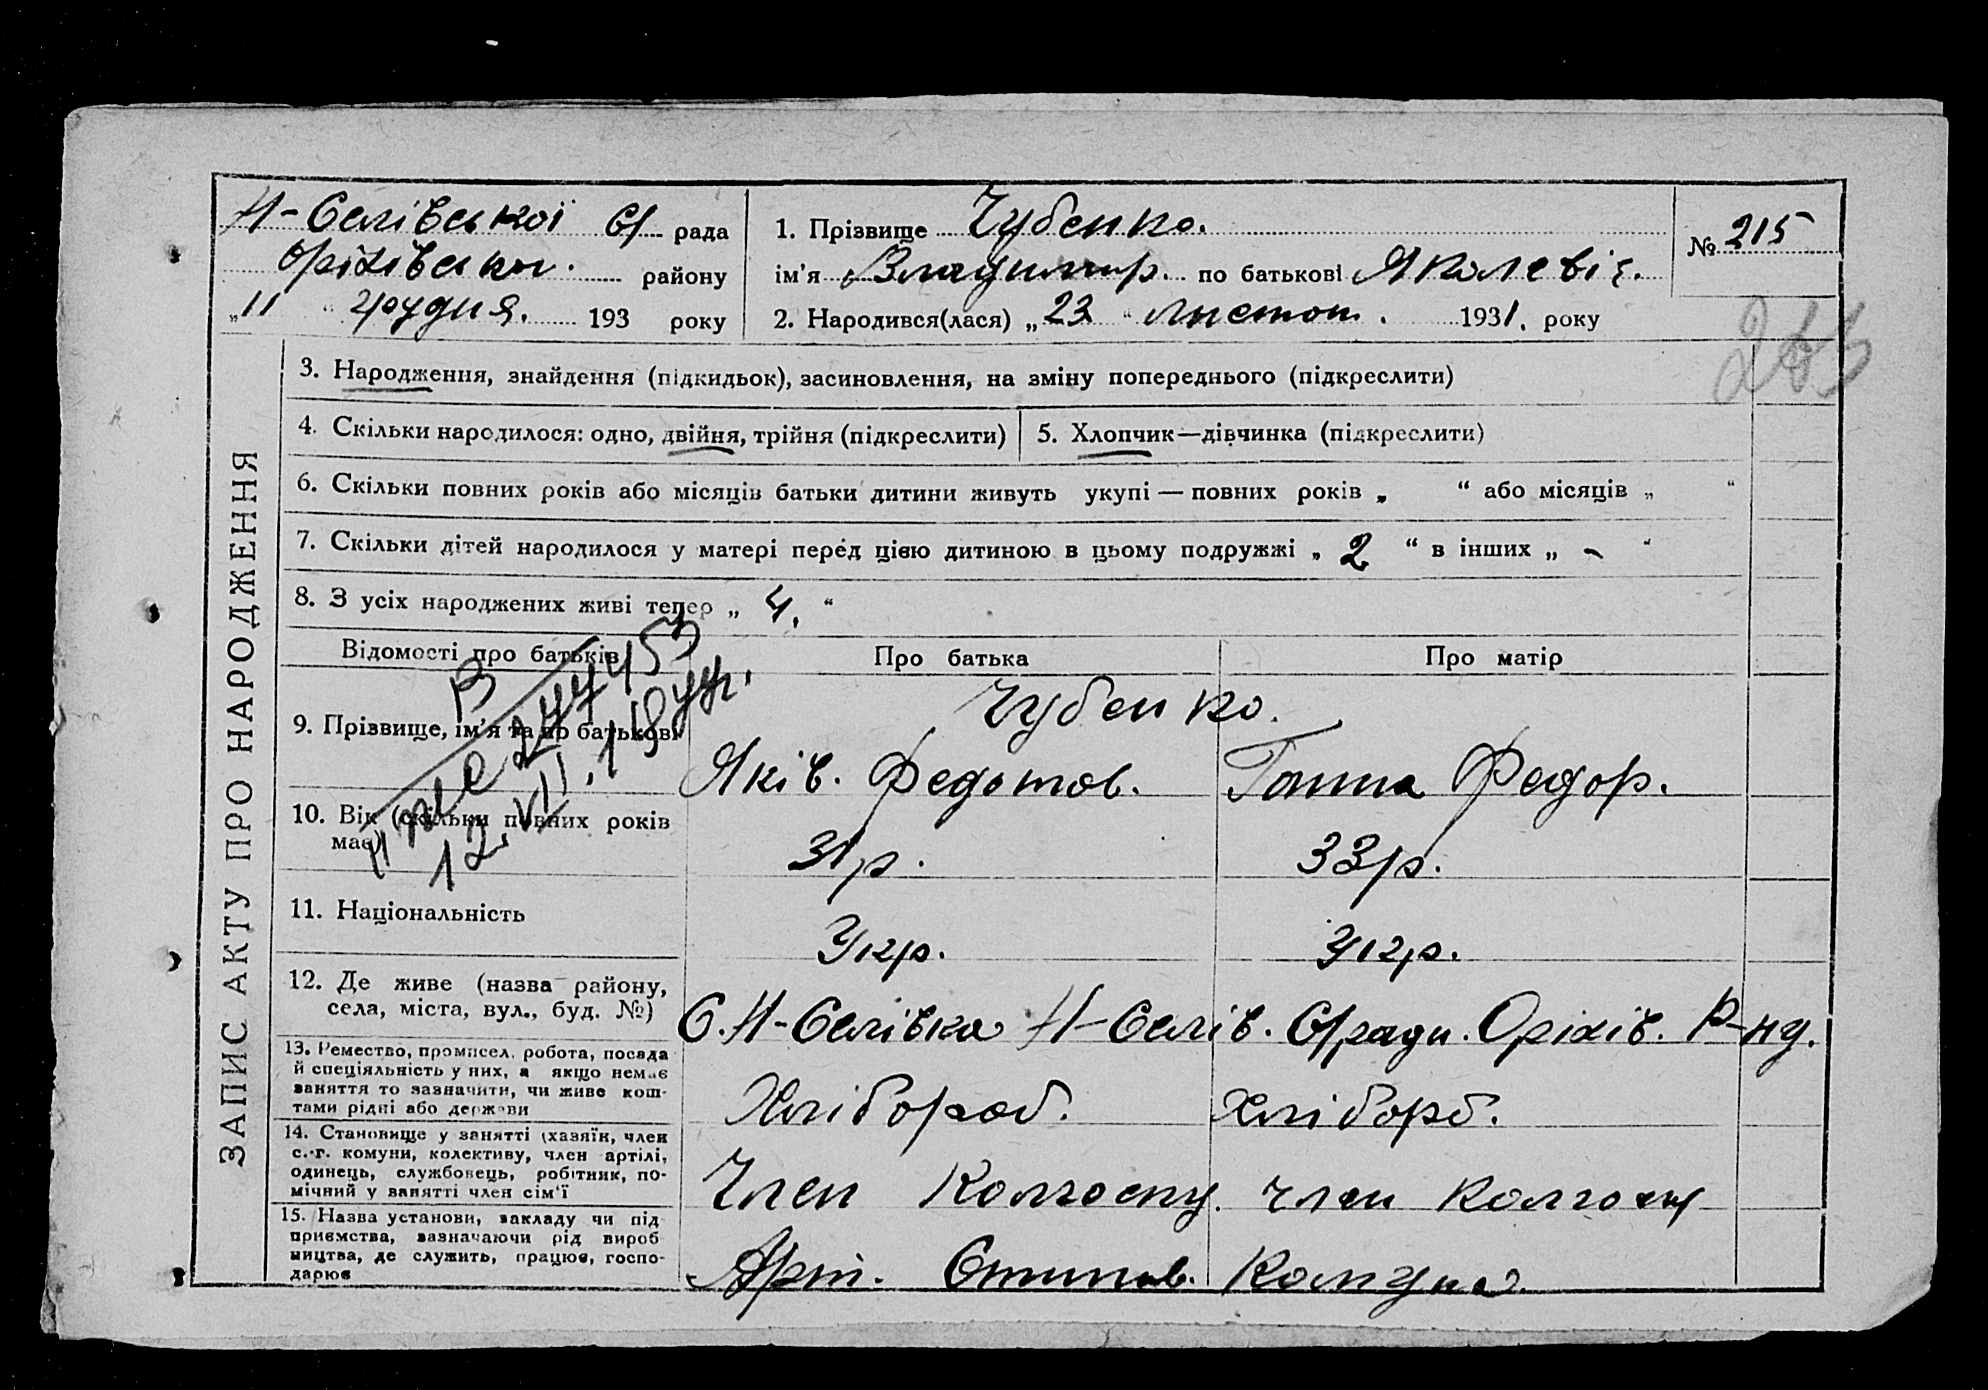 Н-Селівської С/ рада
Оріхівськ. району
„11“ грудня. 193 року
1. Прізвище Чубенко.
ім'я Владимир. по батькові Яколевіч.
2. Народився(лася) „23“ листоп. 1931. року
№ 215
ЗАПИС АКТУ ПРО НАРОДЖЕННЯ
3. Народження, знайдення (підкидьок), засиновлення, на зміну попереднього (підкреслити)
4. Скільки народилося: одно, двійня, трійня (підкреслити)
5. Хлопчик—дівчинка (підкреслити)
6. Скільки повних років або місяців батьки дитини живуть укупі — повних років „ “ або місяців „ “
7. Скільки дітей народилося у матері перед цією дитиною в цьому подружжі „ 2 “ в інших „ - “
8. З усіх народжених живі тепер „ 4. “
Відомості про батьків
Про батька
Про матір
9. Прізвище, ім'я та по батькові
Чубенко.
Яків. Федотов.
Ганна Федор.
10. Вік (скільки повних років
має)
31 р.
33 р.
11. Національність
Укр.
Укр.
12. Де живе (назва району,
села, міста, вул., буд. №)
С. Н-Селівка Н-Селів. С/ради. Оріхів. Р-ну.
13. Ремество, промисел, робота, посада
й спеціяльність у них, а якщо немає
заняття то зазначити, чи живе кош-
тами рідні або держави
Хлібороб.
Хлібороб.
14. Становище у занятті (хазяїн, член
с.-г. комуни, колективу, член артілі,
одинець, службовець, робітник, по-
мічний у занятті член сім'ї
Член Колгоспу.
член колгоспу
15. Назва установи, закладу чи під
приємства, зазначаючи рід вироб
ництва, де служить, працює, госпо-
дарює
Арт. Комуна.